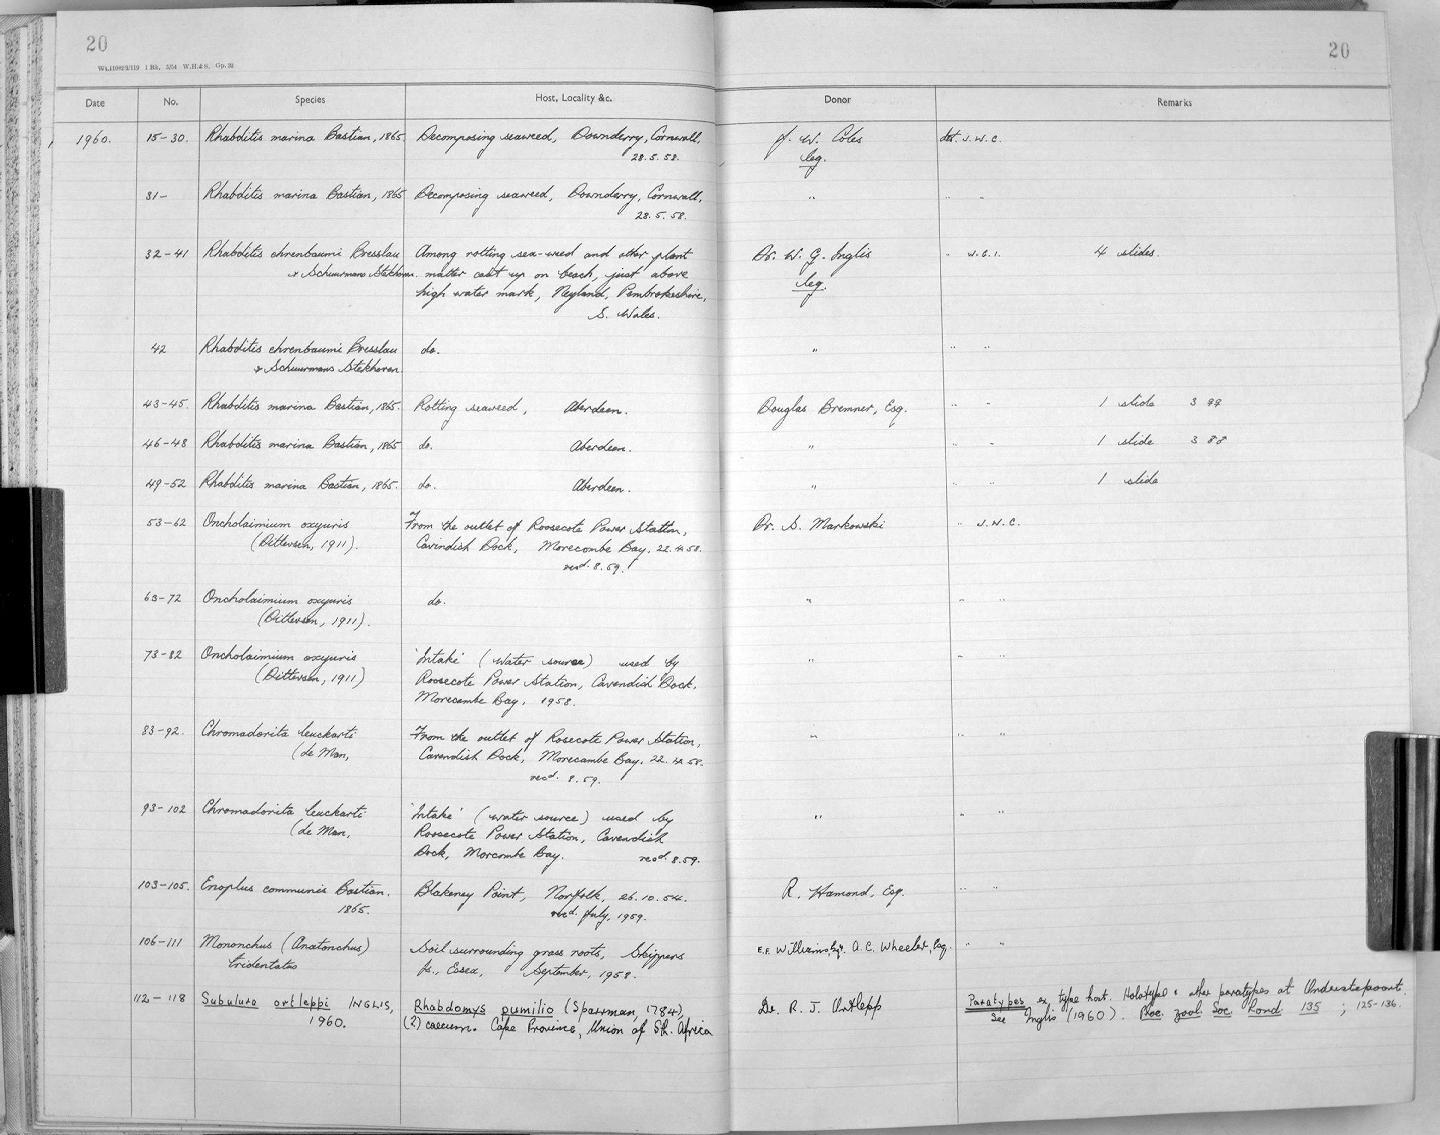 20
20
Wt.11982/119 1 Rh. 5/54 W.H.&S. Gp.32
Date No. Species Host, Locality &c. Donor Remarks
1960. 15-30. Rhabditis marina Bastian, 1865. Decomposing seaweed, Downderry, Cornwall, J. W. Coles det. J.W.C.
28.5.58. leg.
31- Rhabditis marina Bastian, 1865 Decomposing seaweed, Downderry, Cornwall, " " "
28.5.58.
32-41 Rhabditis ehrenbaumi Bresslau Among rotting sea-weed and other plant Dr. W. G. Inglis " W.G.I. 4 slides.
& Schuurmans Stekhoven. matter cast up on beach, just above leg.
high water mark, Neyland, Pembrokeshire,
S. Wales.
42 Rhabditis ehrenbaumi Bresslau do. " " "
& Schuurmans Stekhoven.
43-45. Rhabditis marina Bastian, 1865. Rotting seaweed, Aberdeen. Douglas Bremner, Esq. " " 1 slide 3 ♀♀
46-48 Rhabditis marina Bastian, 1865 do. Aberdeen. " " " 1 slide 3 ♂♂
49-52 Rhabditis marina Bastian, 1865. do. Aberdeen. " " " 1 slide
53-62 Oncholaimium oxyuris From the outlet of Roosecote Power Station, Dr. S. Markowski " J.W.C.
(Ditlevsen, 1911). Cavindish Dock, Morecombe Bay, 22.4.58.
recd. 8.59.
63-72 Oncholaimium oxyuris do. " " "
(Ditlevsen, 1911).
73-82 Oncholaimium oxyuris 'Intake' (water source) used by " " "
(Ditlevsen, 1911) Roosecote Power Station, Cavendish Dock,
Morecambe Bay, 1958.
83-92. Chromadorita leuckarti From the outlet of Rosecote Power Station, " " "
(de Man, Cavendish Dock, Morecambe Bay, 22.4.58.
recd. 8.59.
93-102 Chromadorita leuckarti 'Intake' (water source) used by " " "
(de Man, Roosecote Power Station, Cavendish
Dock, Morcombe Bay. recd. 8.59.
103-105. Enoplus communis Bastian. Blakeney Point, Norfolk, 26.10.54. R. Hamond, Esq. " "
1865. recd. July, 1959.
106-111 Mononchus (Anatonchus) Soil surrounding grass roots, Skippers E.F. Williams, Esq. A.C. Wheeler, Esq. " "
tridentatus Is., Essex, September, 1958.
112-118 Subulura ortleppi INGLIS, Rhabdomys pumilio (Sparrman, 1784), Dr. R. J. Ortlepp Paratypes ex type host. Holotype & other paratypes at Onderstepoort.
1960. (?) caecum. Cape Province, Union of Sth. Africa See Inglis (1960). Proc. zool. Soc. Lond. 135 ; 125-136.